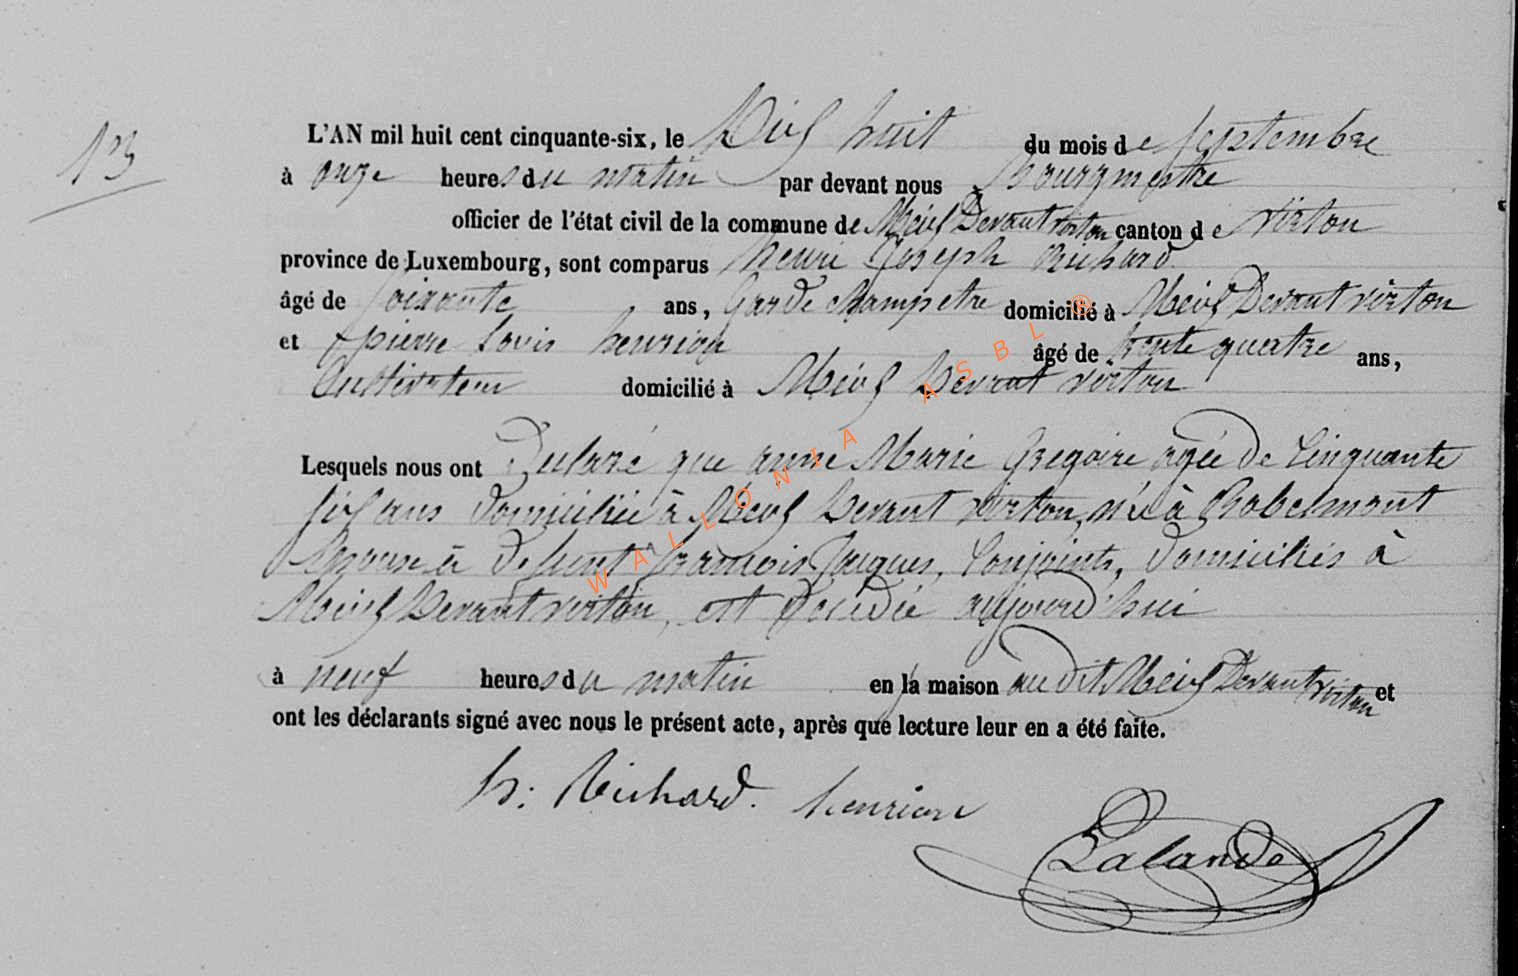 13
L'AN mil huit cent cinquante-six, le Dix huit du mois de Septembre
à onze heures du matin par devant nous Bourgmestre
officier de l'état civil de la commune de Meix Devant virton canton de virton
province de Luxembourg, sont comparus henri Joseph Richard
âgé de soixante ans, Garde Champetre domicilié à Meix Devant virton
et pierre Louis henrion âgé de trente quatre ans,
Cultivateur domicilié à Meix Devant virton
Lesquels nous ont Declaré que anne Marie Gregoire agée de Cinquante
six ans Domiciliée à Meix Devant virton, née à Robelmont
Epouse à Defunt francois Jacques, Conjoints, Domiciliés à
Meix Devant virton, est Decedée aujourd'hui
à neuf heures du matin en la maison audit Meix Devant virton et
ont les déclarants signé avec nous le présent acte, après que lecture leur en a été faite.
h: Richard. henrion
Lalande
WALLONIA ASBL ®